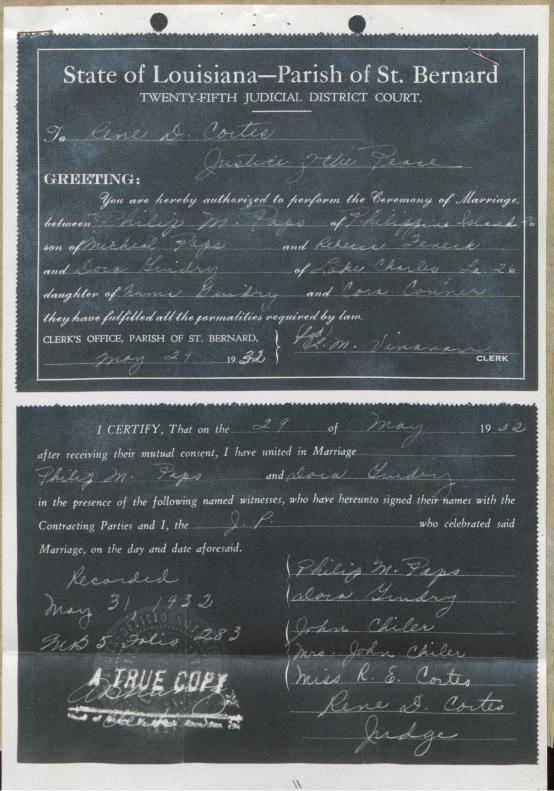 State of Louisiana—Parish of St. Bernard
TWENTY-FIFTH JUDICIAL DISTRICT COURT.
To Rene D. Cortes
Justice of the Peace
GREETING:
You are hereby authorized to perform the Ceremony of Marriage,
between Philip M. Paps of Philippine Island
son of Micheal Paps and Rebecca Feneck
and Dora Guidry of Lake Charles La. 26
daughter of Nama Guidry and Cora Conner
they have fulfilled all the formalities required by law.
CLERK'S OFFICE, PARISH OF ST. BERNARD,
May 29 1932
CLERK
I CERTIFY, That on the 29 of May 1932
after receiving their mutual consent, I have united in Marriage
Philip M. Paps and Dora Guidry
in the presence of the following named witnesses, who have hereunto signed their names with the
Contracting Parties and I, the J. P. who celebrated said
Marriage, on the day and date aforesaid.
Recorded
May 31, 1932
MB 5 Folio 283
A TRUE COPY
Philip M. Paps
Dora Guidry
John Chiler
Mrs. John Chiler
Miss R. E. Cortes
Rene D. Cortes
Judge